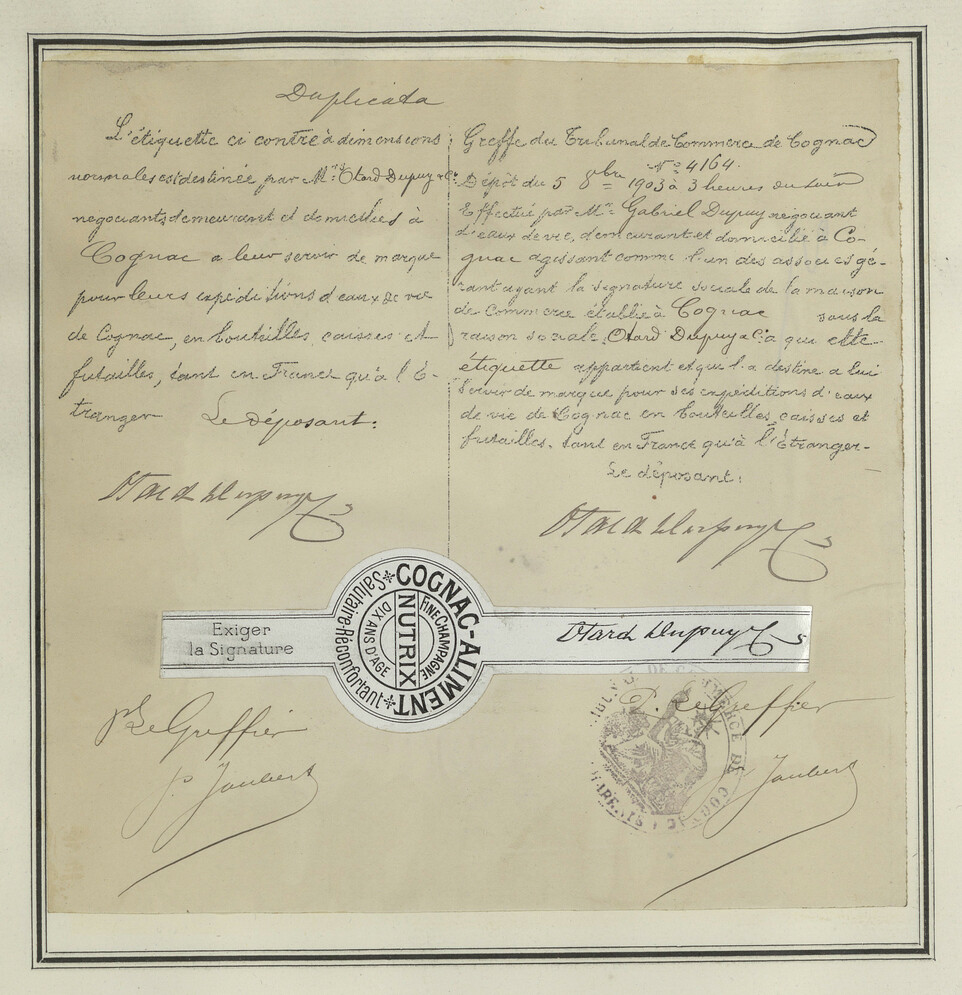 Duplicata
L'étiquette ci contre à dimensions
normales est destinée par Mrs Otard Dupuy & Cie
negociants demeurant et domicilies à
Cognac a leur servir de marque
pour leurs expeditions d'eaux de vie
de Cognac, en bouteilles, caisses et
futailles, tant en France qu'à l'E-
tranger
Le déposant:
Otard Dupuy & Co
Greffe du Tribunal de Commerce de Cognac
No 4164.
Dépôt du 5 8bre 1903 à 3 heures du soir
Effectué par Mr Gabriel Dupuy négociant
d'eaux de vie, demeurant et domicilié à Co-
gnac agissant comme l'un des associes gé-
rant ayant la signature sociale de la maison
de Commerce établie à Cognac sous la
raison sociale Otard Dupuy & Co a qui cette
étiquette appartient et qui l'a destine a lui
servir de marque pour ses expéditions d'eaux
de vie de Cognac en bouteilles, caisses et
futailles, tant en France qu'à l'Etranger-
Le déposant:
Otard Dupuy & Co
Exiger
la Signature
COGNAC-ALIMENT
Salutaire-Réconfortant
FINE CHAMPAGNE
NUTRIX
DIX ANS D'AGE
Otard Dupuy & Co
Le Greffier
P. Joubert
P. Le Greffier
Joubert
DE COMMERCE DE COGNAC